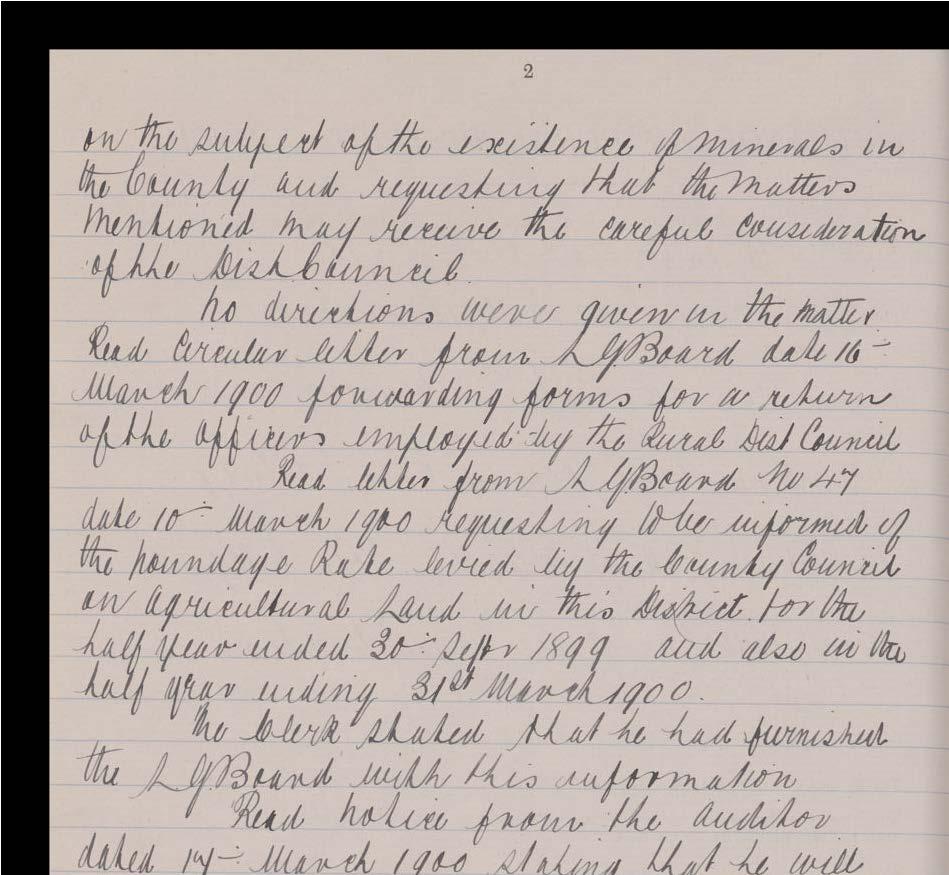 2
on the subject of the existence of minerals in
the County and requesting that the matters
mentioned may receive the careful consideration
of the Dist Council.
No directions were given in the matter.
Read Circular letter from L G Board date 16
March 1900 forwarding forms for a return
of the officers employed by the Rural Dist Council
Read letter from L G Board No 47
date 10 March 1900 requesting to be informed of
the poundage Rate levied by the County Council
on Agricultural Land in this District for the
half year ended 30 Septr 1899 and also in the
half year ending 31st March 1900.
The Clerk stated that he had furnished
the L G Board with this information
Read notice from the auditor
dated March 1900 stating that he will